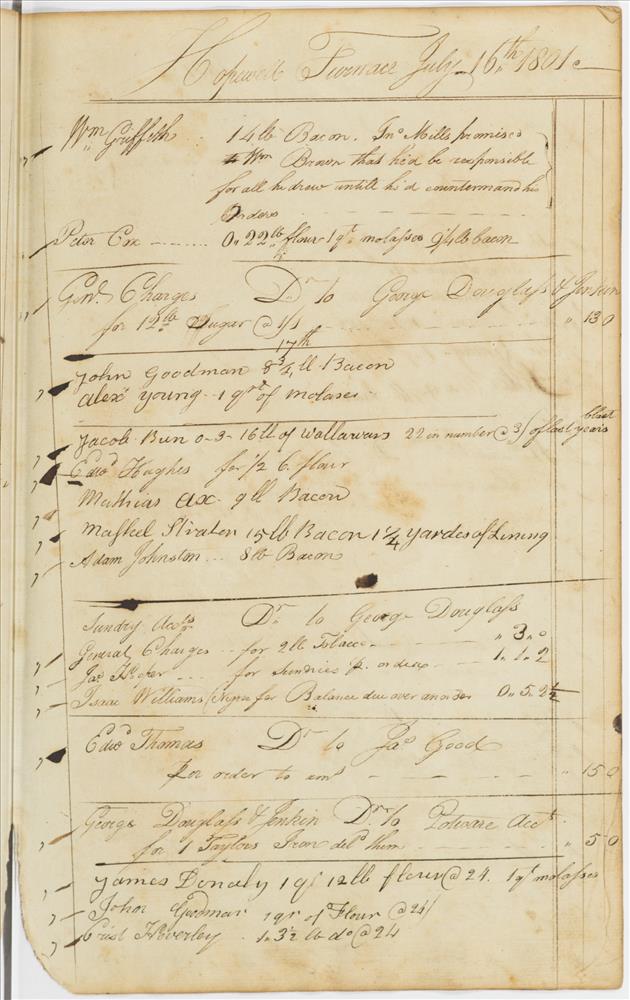 Hopewell Furnace July 16th 1801
Wm Griffith 14 lb Bacon. Jno Mills promises
to Wm Brown that he'd be responsible
for all he drew untill he'd countermand his
Orders
Peter Cox 0,, 22 lb flour 1 qt molasses 9 1/4 lb bacon
Genl Charges Dr to George Douglass & Jenkin
for 12 lb Sugar @ 1/1 ,, 13 0
17th
John Goodman 8 3/4 ll Bacon
Alexr young 1 qrt of molases
blast
Jacob Bun 0-3-16 ll of Wallawars 22 in number @ 3/ of last years
Edwd Hughes for 1/2 C. flour
Mathias ax 9 ll Bacon
Maskel Straten 15 lb Bacon 1 1/4 yardes of Lining
Adam Johnston 8 lb Bacon
Sundry Accts Dr to George Douglass
General Charges for 2 lb Tobacco ,, 3,, 0
Jas Hooper for Sundries pr order 1,, 1,, 2
Isaac Williams (Negro for Balance due over another 0,, 5,, 2 1/2
Edwd Thomas Dr to Jas Good
for order to amt ,, 15 0
George Douglass & Jenkin Dr to Potware Acct
for 1 Taylors Iron deld them ,, 5 0
James Donaly 1 qr 12 lb flour @ 24. 1 qt molasses
John Goodman 1 qr of Flour @ 24/
Crist Heverley 1,, 3 1/2 lb do @ 24